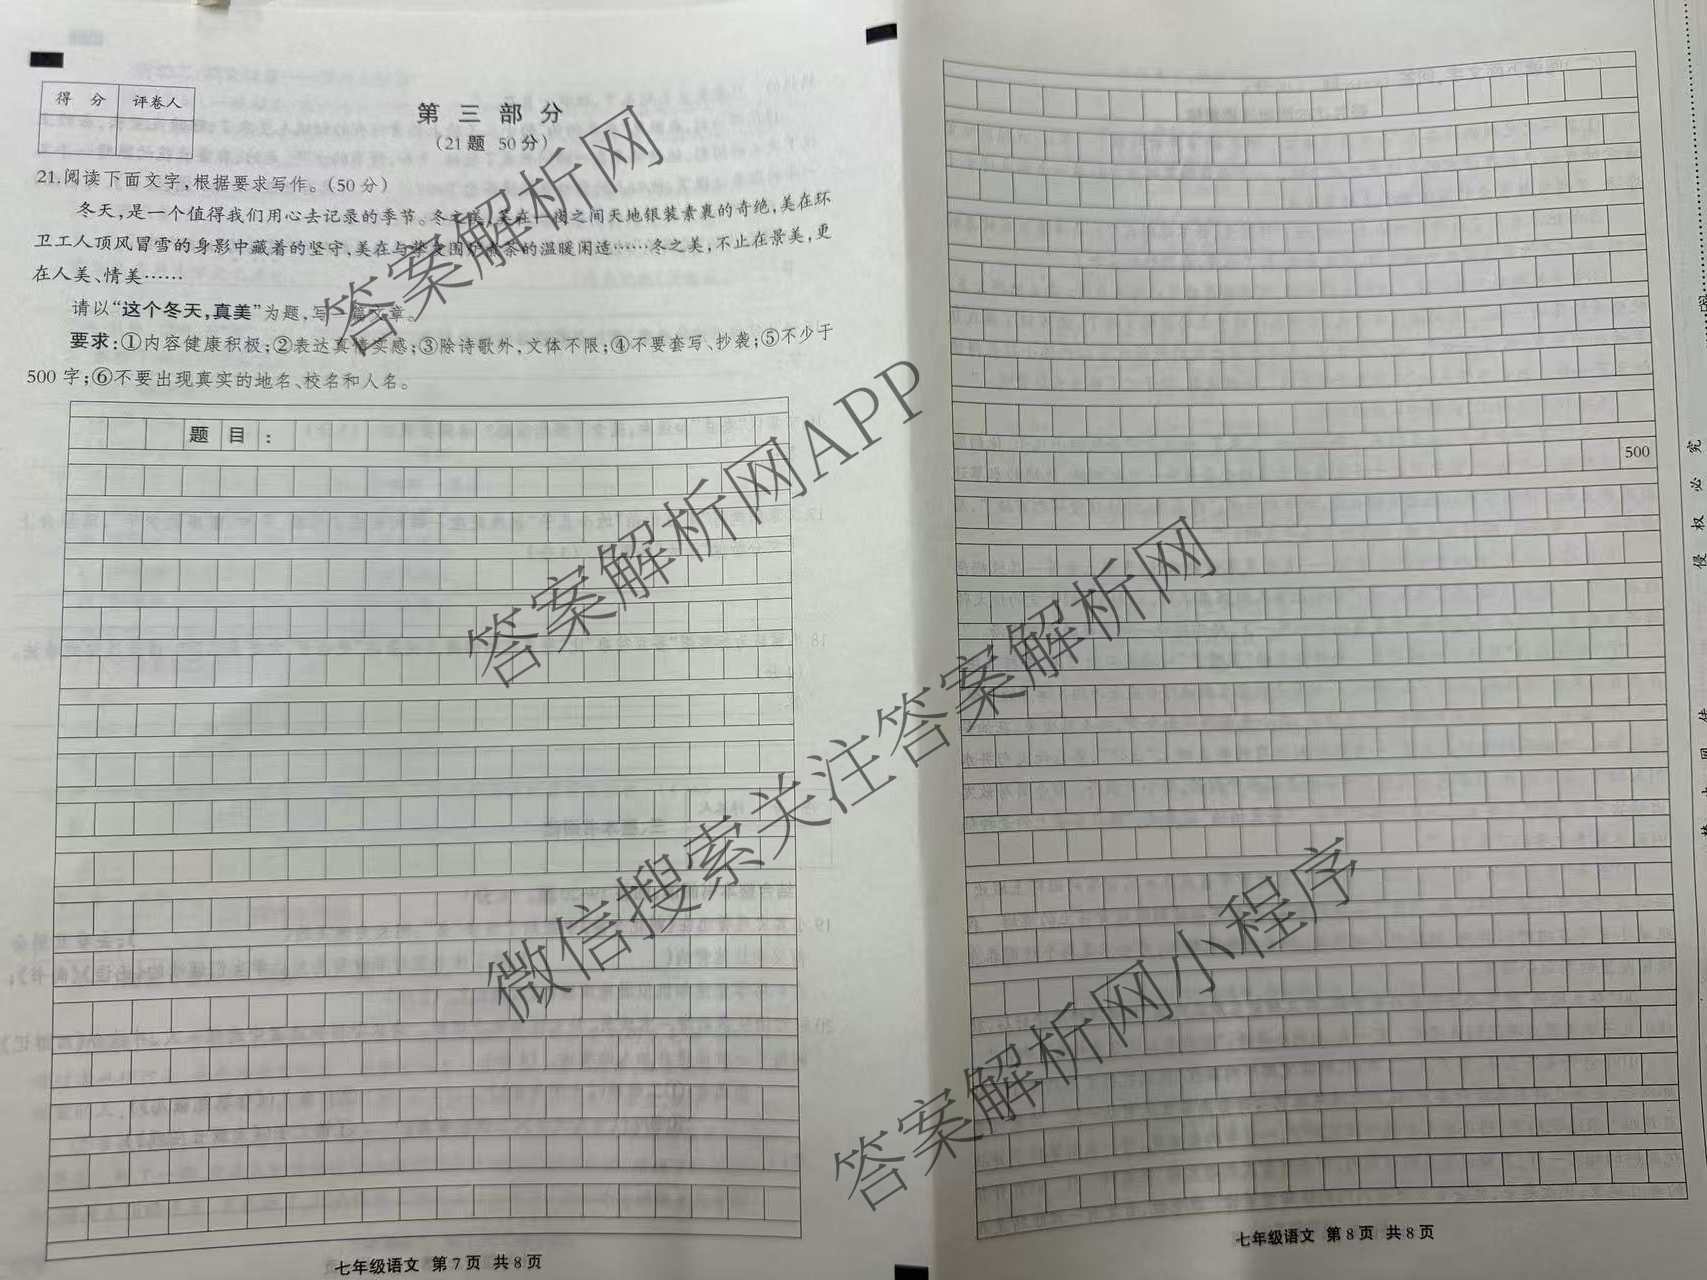 得 分 评卷人
第 三 部 分
(21题 50分)
21.阅读下面文字,根据要求写作。(50分)
冬天,是一个值得我们用心去记录的季节。冬之美,美在一夜之间天地银装素裹的奇绝,美在环
卫工人顶风冒雪的身影中藏着的坚守,美在与围炉煮茶的温暖闲适……冬之美,不止在景美,更
在人美、情美……
请以“这个冬天,真美”为题,写一篇文章。
要求:①内容健康积极;②表达真情实感;③除诗歌外,文体不限;④不要套写、抄袭;⑤不少于
500字;⑥不要出现真实的地名、校名和人名。
题 目 :
七年级语文 第7页 共8页
500
七年级语文 第8页 共8页
侵 权 必 究
答案解析网
答案解析网APP
微信搜索关注答案解析网
答案解析网小程序